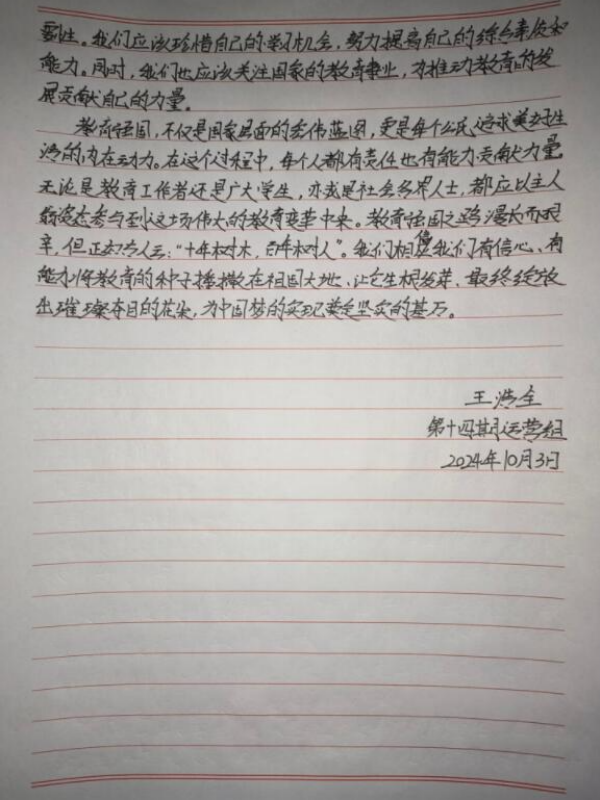 要性。我们应该珍惜自己的学习机会，努力提高自己的综合素质和
能力。同时，我们也应该关注国家的教育事业，为推动教育的发
展贡献自己的力量。
教育强国，不仅是国家层面的宏伟蓝图，更是每个公民追求美好生
活的内在动力。在这个过程中，每个人都有责任也有能力贡献力量。
无论是教育工作者还是广大学生，亦或是社会各界人士，都应以主人
翁姿态参与到这场伟大的教育变革中来。教育强国之路漫长而艰
辛，但正如古人云：“十年树木，百年树人”。我们相信我们有信心、有
能力将教育的种子播撒在祖国大地、让它生根发芽、最终绽放
出璀璨夺目的花朵，为中国梦的实现奠定坚实的基石。
王浩全
第十四期运营组
2024年10月3日